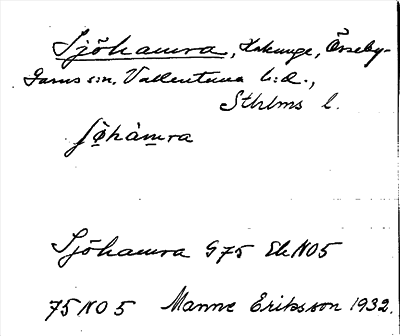 Sjöhamra, Hakunge, Össeby-
Garns s:n, Vallentuna h:d.,
Sthlms l.
ʃö̀hàmra
Sjöhamra G75 Ek NO5
75 NO 5 Manne Eriksson 1932.